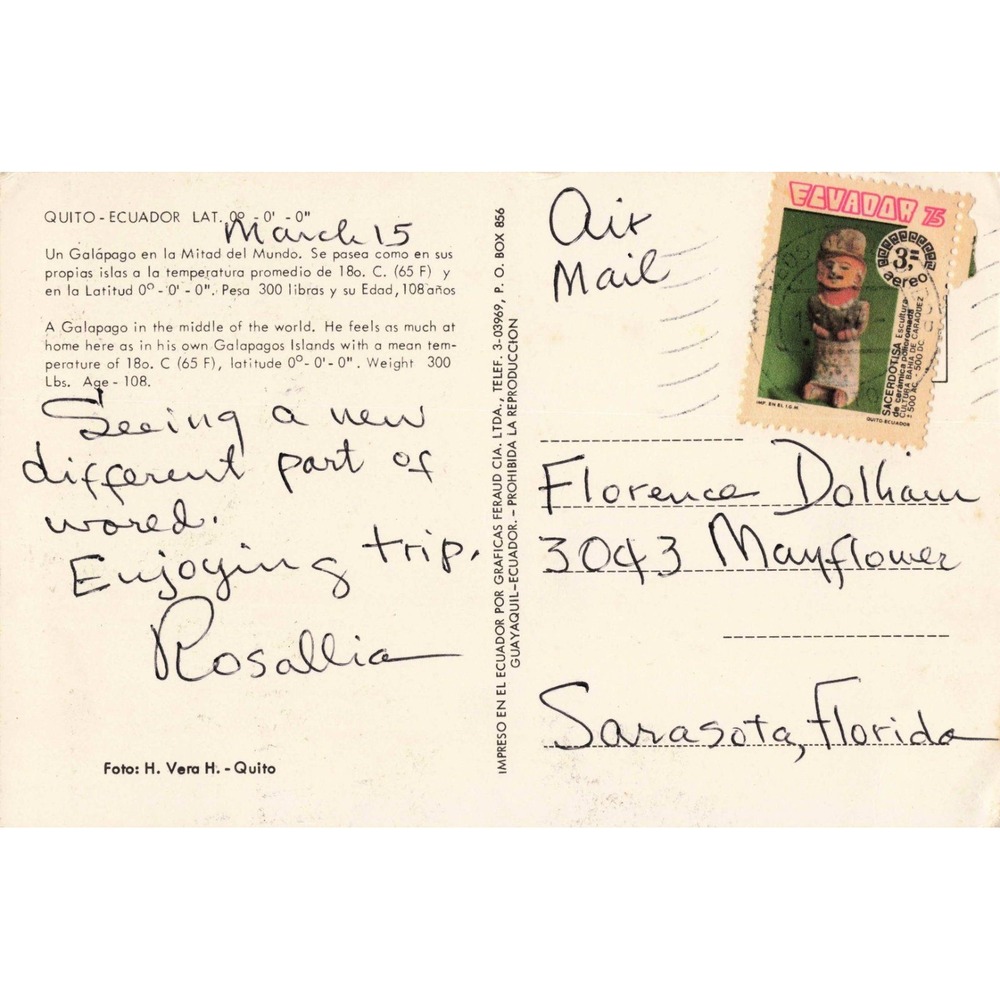 QUITO - ECUADOR LAT. 0º - 0' - 0"
March 15
Un Galápago en la Mitad del Mundo. Se pasea como en sus
propias islas a la temperatura promedio de 18o. C. (65 F) y
en la Latitud 0º - 0' - 0". Pesa 300 libras y su Edad, 108 años
A Galapago in the middle of the world. He feels as much at
home here as in his own Galapagos Islands with a mean tem-
perature of 18o. C (65 F), latitude 0º - 0' - 0". Weight 300
Lbs. Age - 108.
Seeing a new
different part of
wored.
Enjoying trip.
Rosallia
Foto: H. Vera H. - Quito
IMPRESO EN EL ECUADOR POR GRAFICAS FERAUD CIA. LTDA., TELEF. 3-03969, P. O. BOX 856
GUAYAQUIL-ECUADOR. - PROHIBIDA LA REPRODUCCION
Air
Mail
ECUADOR 75
3,=
aereo
SACERDOTISA Escultura
de cerámica policromada
CULTURA BAHIA DE CARAQUEZ
500 AC. - 500 DC
IMP. EN EL I.G.M.
QUITO ECUADOR
Florence Dolham
3043 Mayflower
Sarasota, Florida